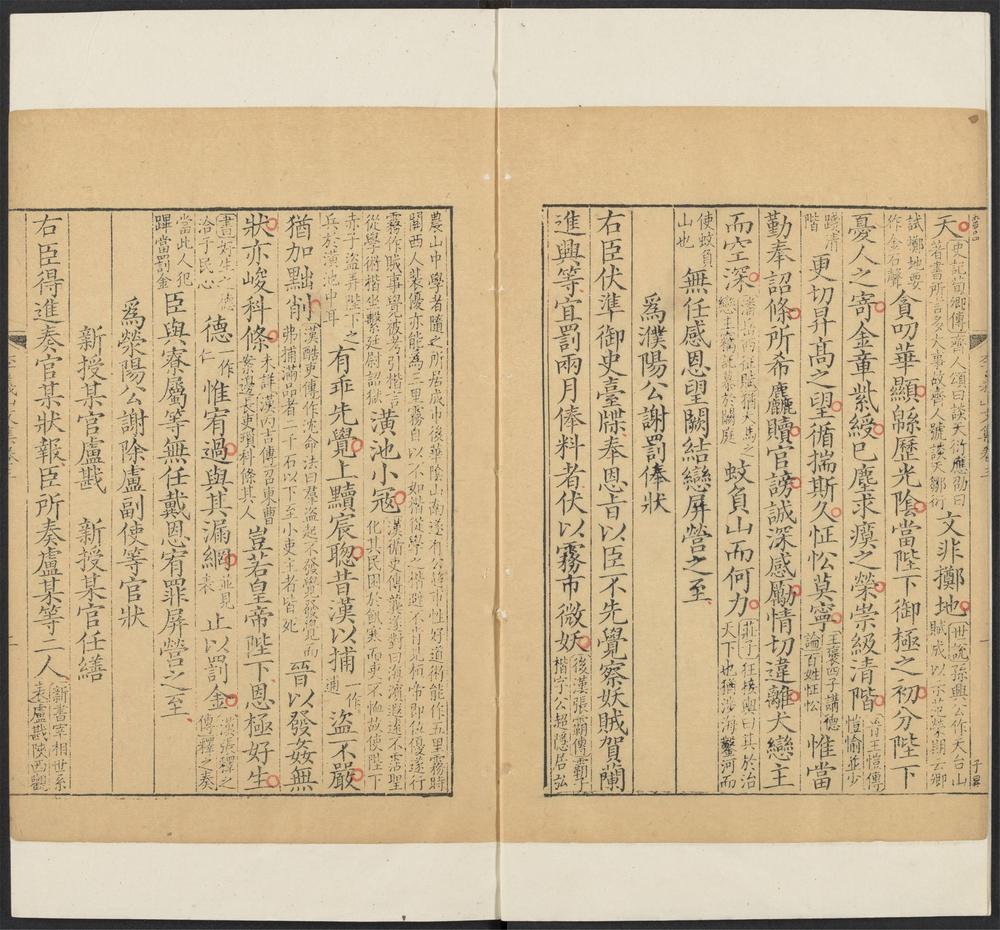 天史記荀卿傳齊人頌曰談天衍應劭曰著書所言多大事故齊人號談天鄒衍文非擲地世說孫興公作天台山賦成以示范榮期云卿
試擲地要作金石聲貪叨華顯緜歷光陰當陛下御極之初分陛下
憂人之寄金章紫綬已塵求瘼之榮崇級清階晉王愷傳愷愉並少
踐清階更切昇高之望循揣斯久怔忪莫寧王褒四子講德論百姓怔忪惟當
勤奉詔條所希麤贖官謗誠深感勵情切違離犬戀主
而空深潘岳西征賦猶犬馬之戀主竊託慕於闕庭蚊負山而何力莊子狂接輿曰其於治天下也猶涉海鑿河而
使蚊負山也無任感恩望闕結戀屏營之至
爲濮陽公謝罰俸狀
右臣伏準御史臺牒奉恩旨以臣不先覺察妖賊賀蘭
進興等宜罰兩月俸料者伏以霧市微妖後漢張霸傳霸子楷字公超隱居弘
農山中學者隨之所居成市後華陰山南遂有公超市性好道術能作五里霧時
關西人裴優亦能爲三里霧自以不如楷從學之楷避不肯見桓帝即位優遂行
霧作賊事覺被考引楷言從學術楷坐繫廷尉詔獄潢池小寇漢循吏傳龔遂對曰海瀕遐遠不霑聖化其民困於飢寒而吏不恤故使陛下
赤子盜弄陛下之兵於潢池中耳有乖先覺上黷宸聰昔漢以捕一作逋盜不嚴
猶加黜削漢酷吏傳作沈命法曰羣盜起不發覺發覺而弗捕滿品者二千石以下至小吏主者皆死晉以發姦無
狀亦峻科條未詳漢丙吉傳召東曹案邊長吏瑣科條其人豈若皇帝陛下恩極好生
書好生之德洽于民心德一作仁惟宥過與其漏網並見表止以罰金漢張釋之傳釋之奏
當此人犯蹕當罰金臣與寮屬等無任戴恩宥罪屏營之至
爲滎陽公謝除盧副使等官狀
新授某官盧戡 新授某官任繕
右臣得進奏官某狀報臣所奏盧某等二人新書宰相世系表盧戡陝西觀